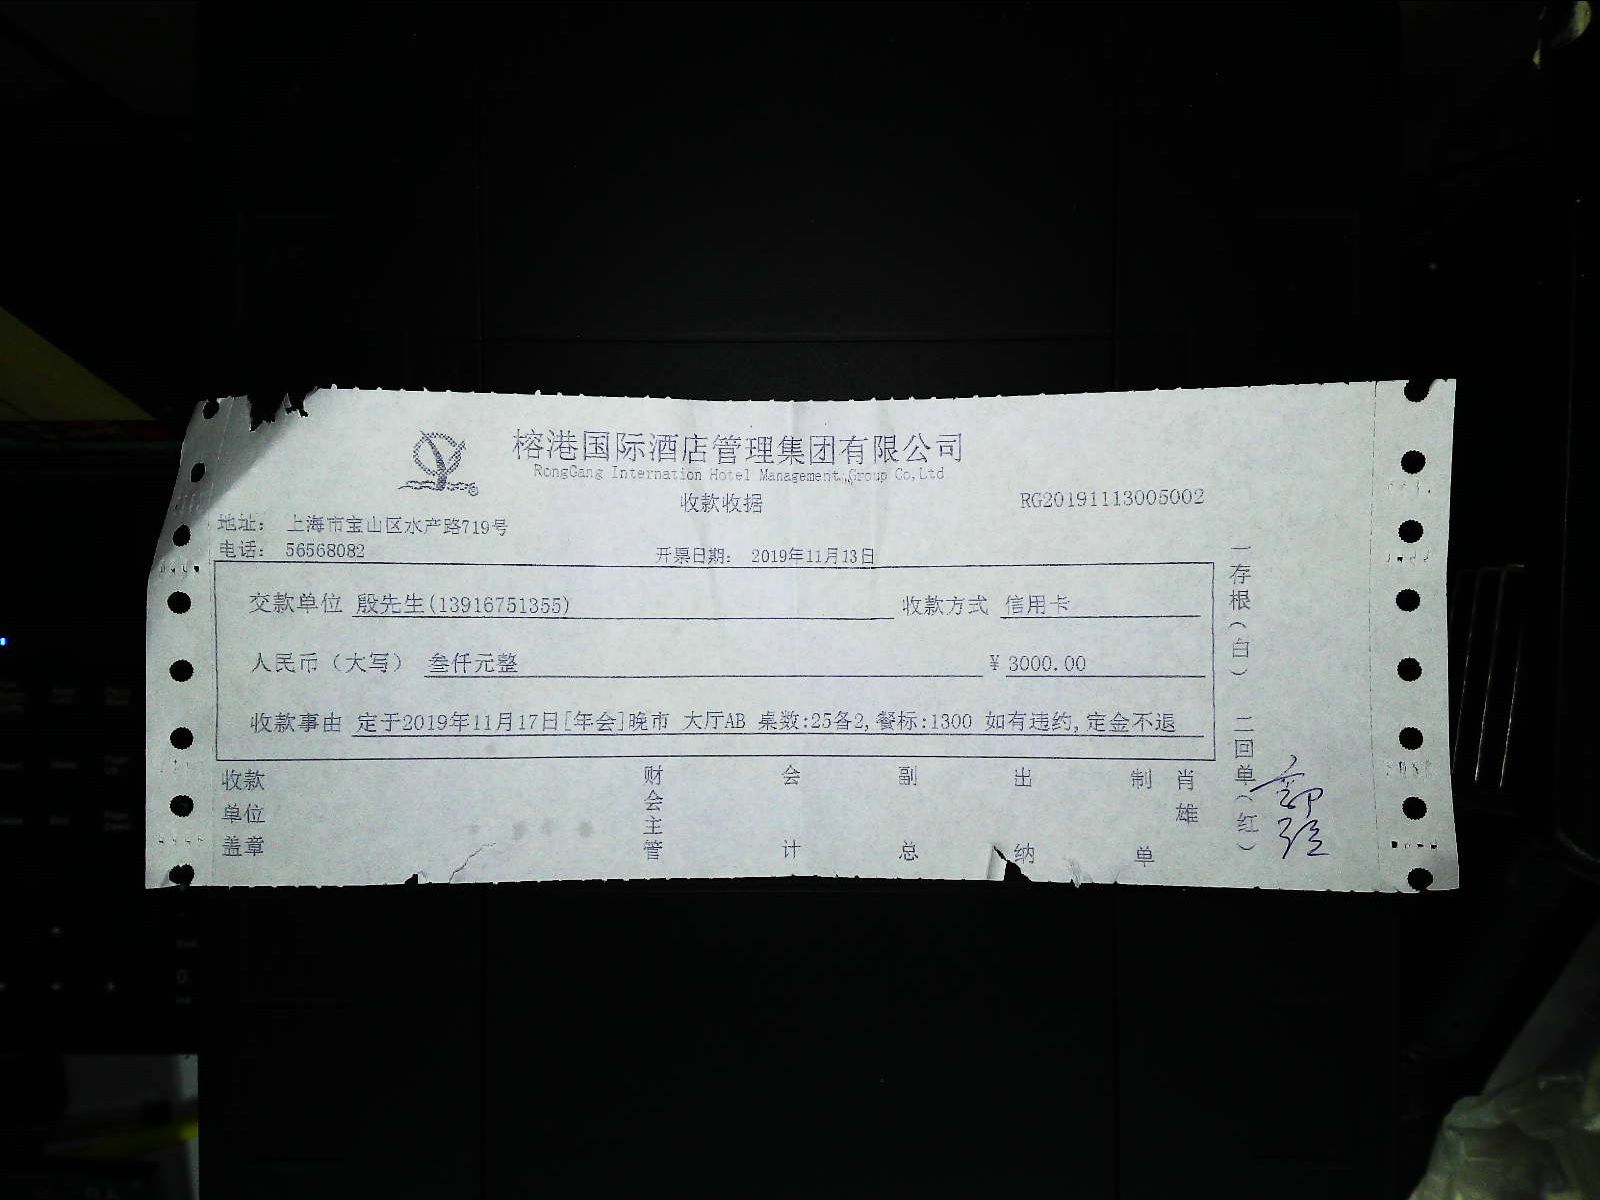 榕港国际酒店管理集团有限公司
RongGang Internation Hotel Management Group Co,Ltd
收款收据
RG20191113005002
地址： 上海市宝山区水产路719号
电话： 56568082
开票日期： 2019年11月13日
交款单位 殷先生(13916751355)
收款方式 信用卡
人民币（大写） 叁仟元整
¥ 3000.00
收款事由 定于2019年11月17日[年会]晚市 大厅AB 桌数:25备2,餐标:1300 如有违约,定金不退
收款单位盖章
财会主管
会计
副总
出纳
制单
肖雄
一存根（白） 二回单（红）